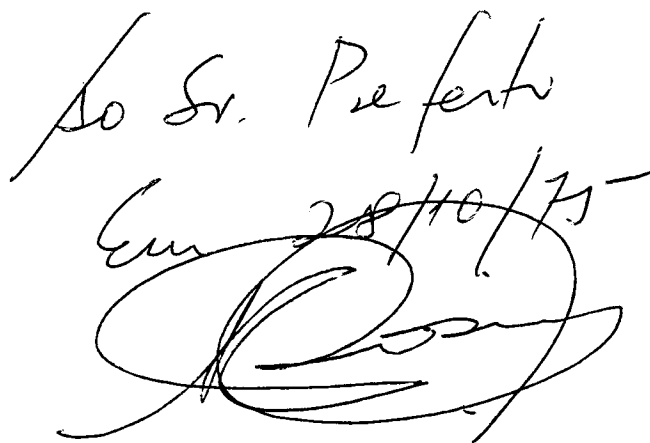 Ao Sr. Prefeito
Em 28/10/75